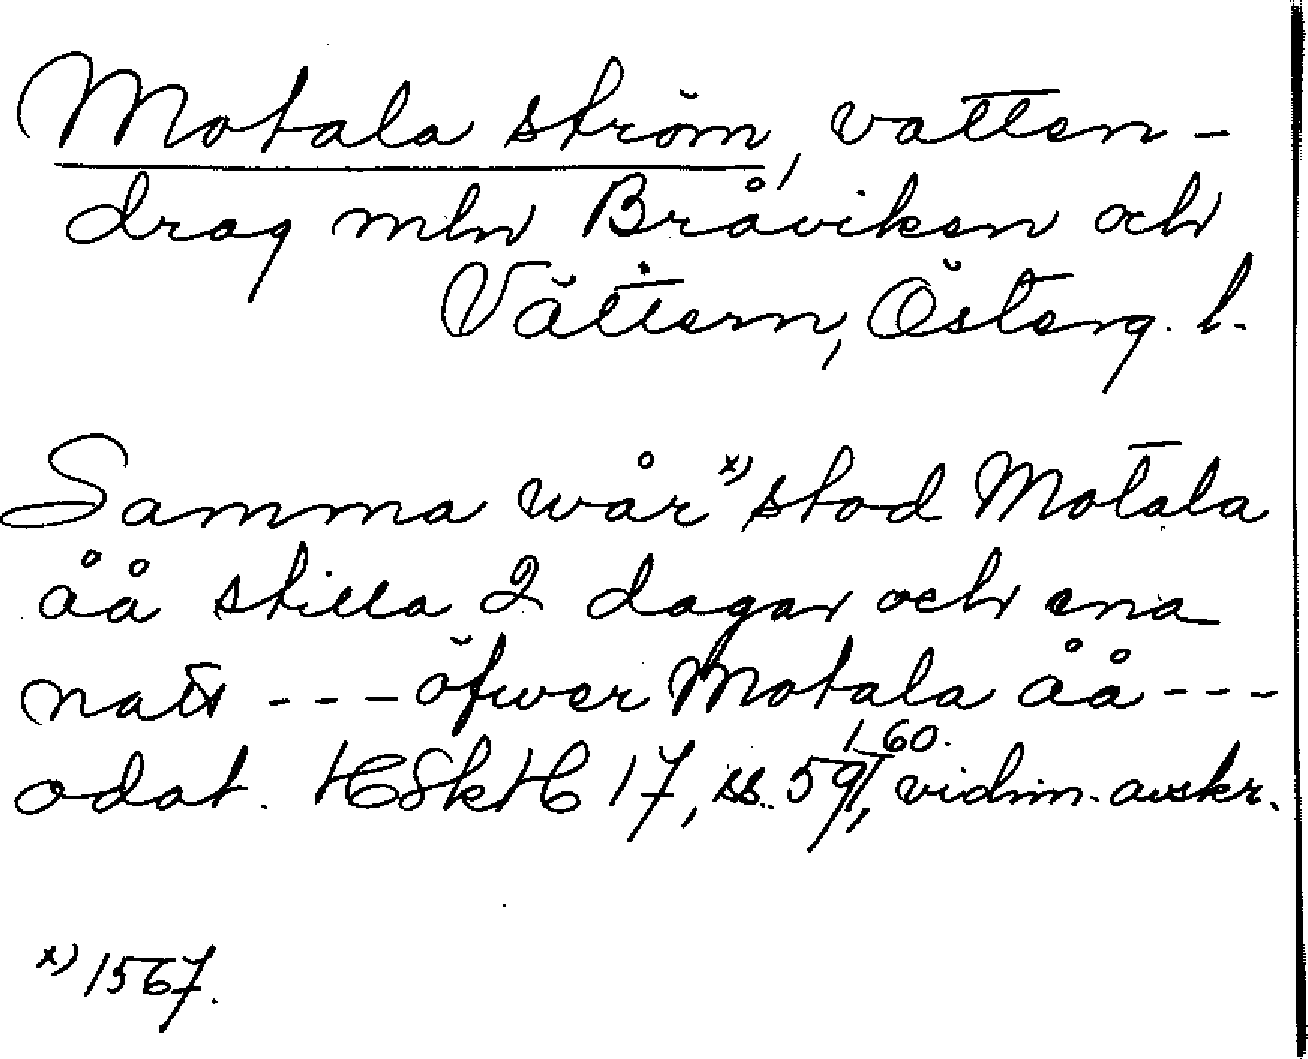 Motala ström, vatten-
drag mln Bråviken och
Vättern, Österg. l.
Samma wår x) stod Motala
åå stilla 2 dagar och ena
natt --- öfwer Motala åå ---
odat. HSkH 17, ss. 59, 60. vidim. avskr.
x) 1567.